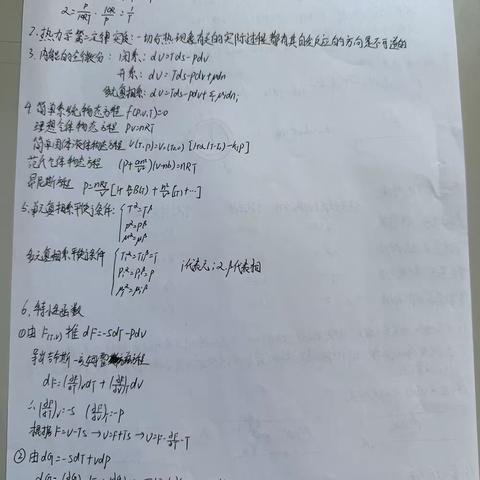 α = P/nRT · nR/P = 1/T
2. 热力学第二定律实质：一切与热现象有关的实际过程都有其自发反应的方向是不可逆的
3. 内能的全微分：闭系：dU=Tds-pdv
开系：dU=Tds-pdv+μdn
多元复相系：dU=Tds-pdv+Σμidni
4. 简单系统物态方程 f(P,V,T)=0
理想气体物态方程 PV=nRT
简单固体液体物态方程 V(T,P)=V₀(T₀,0)[1+α(T-T₀)-kTP]
范氏气体物态方程 (P+an²/V²)(V-nb)=nRT
昂尼斯方程 P=nRT/V[1+n/V B(T)+n²/V² C(T)+…]
5. 单元复相系平衡条件：{Tα=Tβ
Pα=Pβ
μα=μβ
多元复相系平衡条件{T₁α=T₁β=T
P₁α=P₁β=P
μiα=μiβ
i代表元；α.β代表相
6. 特性函数
①由F(T,V)推 dF=-sdT-pdv
dF=(∂F/∂T)v dT+(∂F/∂V)T dV
∴(∂F/∂T)v=-s (∂F/∂V)T=-p
根据F=U-TS→U=F+TS→U=F-∂F/∂T·T
②由dG=-sdT+vdp